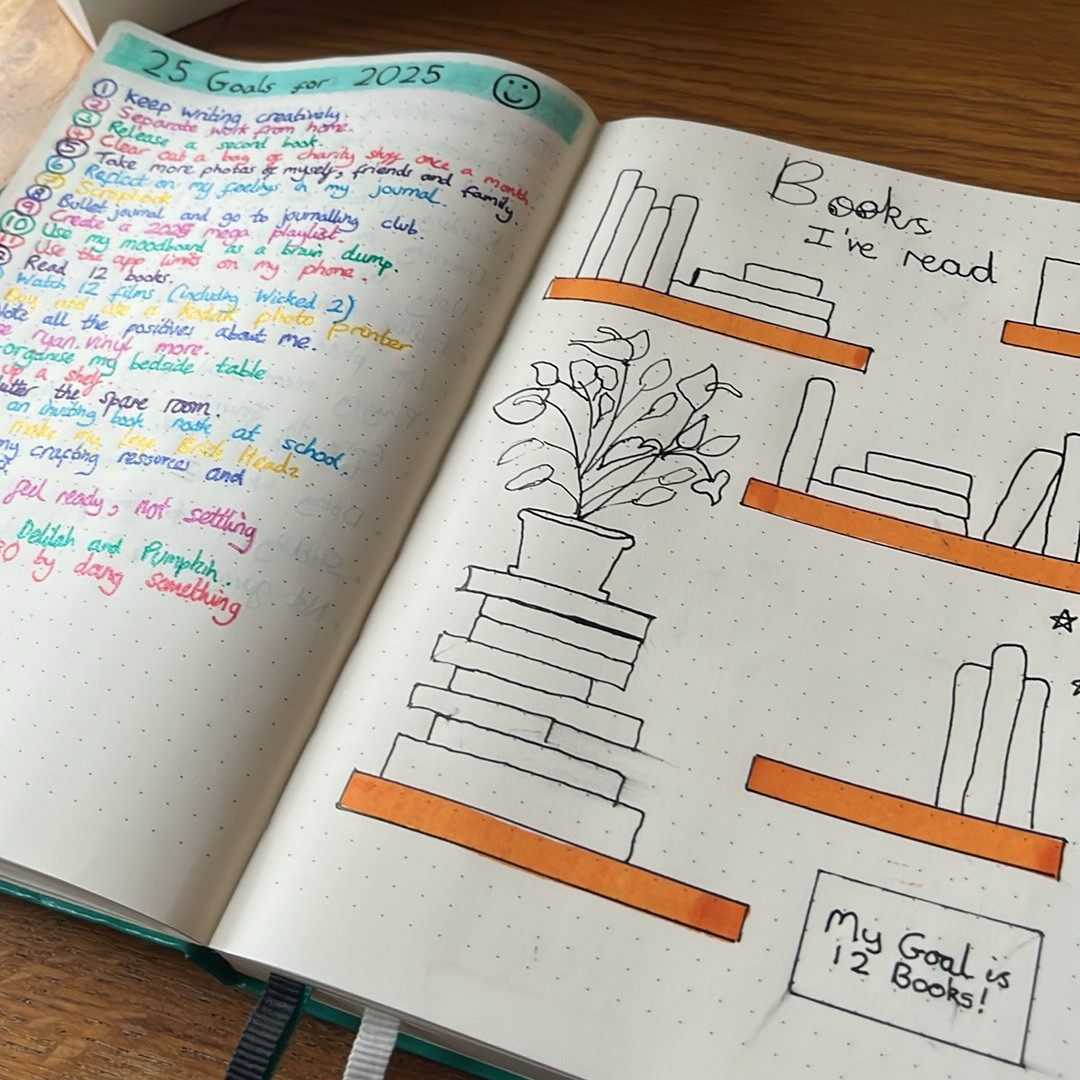 25 Goals for 2025
1 Keep writing creatively.
2 Separate work from home.
3 Release a second book.
4 Clear out a bag of charity stuff once a month.
5 Take more photos of myself, friends and family.
6 Reflect on my feelings in my journal.
7 Scrapbook
8 Bullet journal and go to journalling club.
9 Create a 2025 mega playlist.
10 Use my moodboard as a brain dump.
Use the app limits on my phone.
Read 12 books.
Watch 12 films (including Wicked 2)
Buy and use a Kodak photo printer
all the positives about me.
ryan. vinyl more.
organise my bedside table
up a shelf.
the spare room.
an inviting book nook at school.
make my Lego Brick Headz.
my crafting resources and
feel ready, not settling
Delilah and Pumpkin.
30 by doing something
Books
I've read
My Goal is
12 Books!